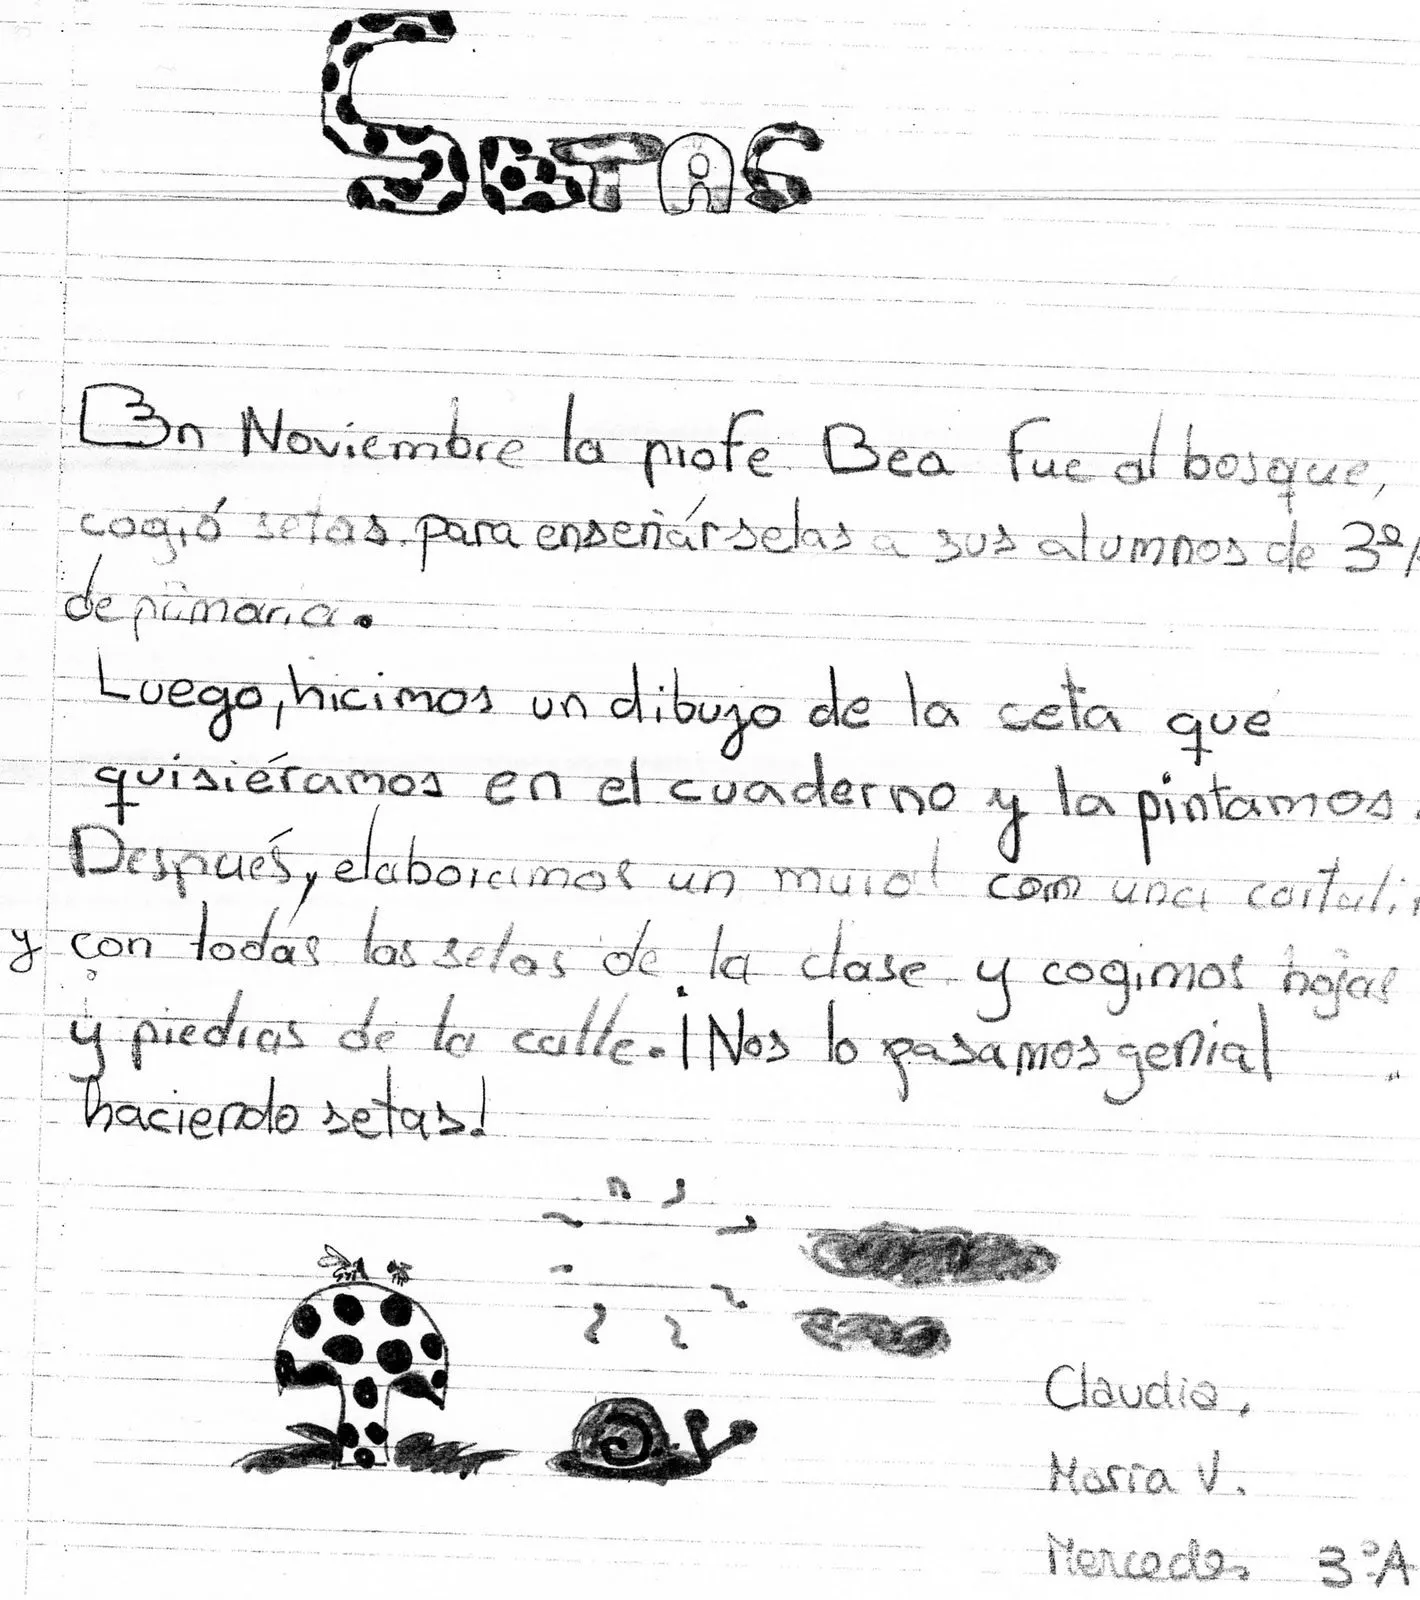 SETAS
En Noviembre la profe Bea fue al bosque,
cogió setas para enseñárselas a sus alumnos de 3º
de primaria.
Luego, hicimos un dibujo de la ceta que
quisiéramos en el cuaderno y la pintamos.
Después, elaboramos un mural con una
y con todas las setas de la clase y cogimos hojas
y piedras de la calle. ¡Nos lo pasamos genial
haciendo setas!
Claudia,
María V.
Mercedes 3ºA